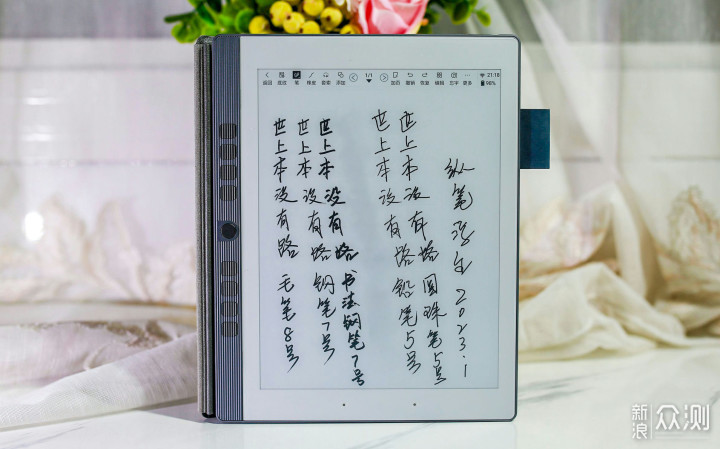 1/1 21:18
返回 笔 套索 添加 加页 撤销 恢复 编辑 更多 98%
纵笔浮生 2023.1
世上本没有路 圆珠笔5号
世上本没有路 铅笔5号
世上本没有路 书法钢笔7号
世上本没有路 钢笔7号
世上本没有路 毛笔8号
新浪众测